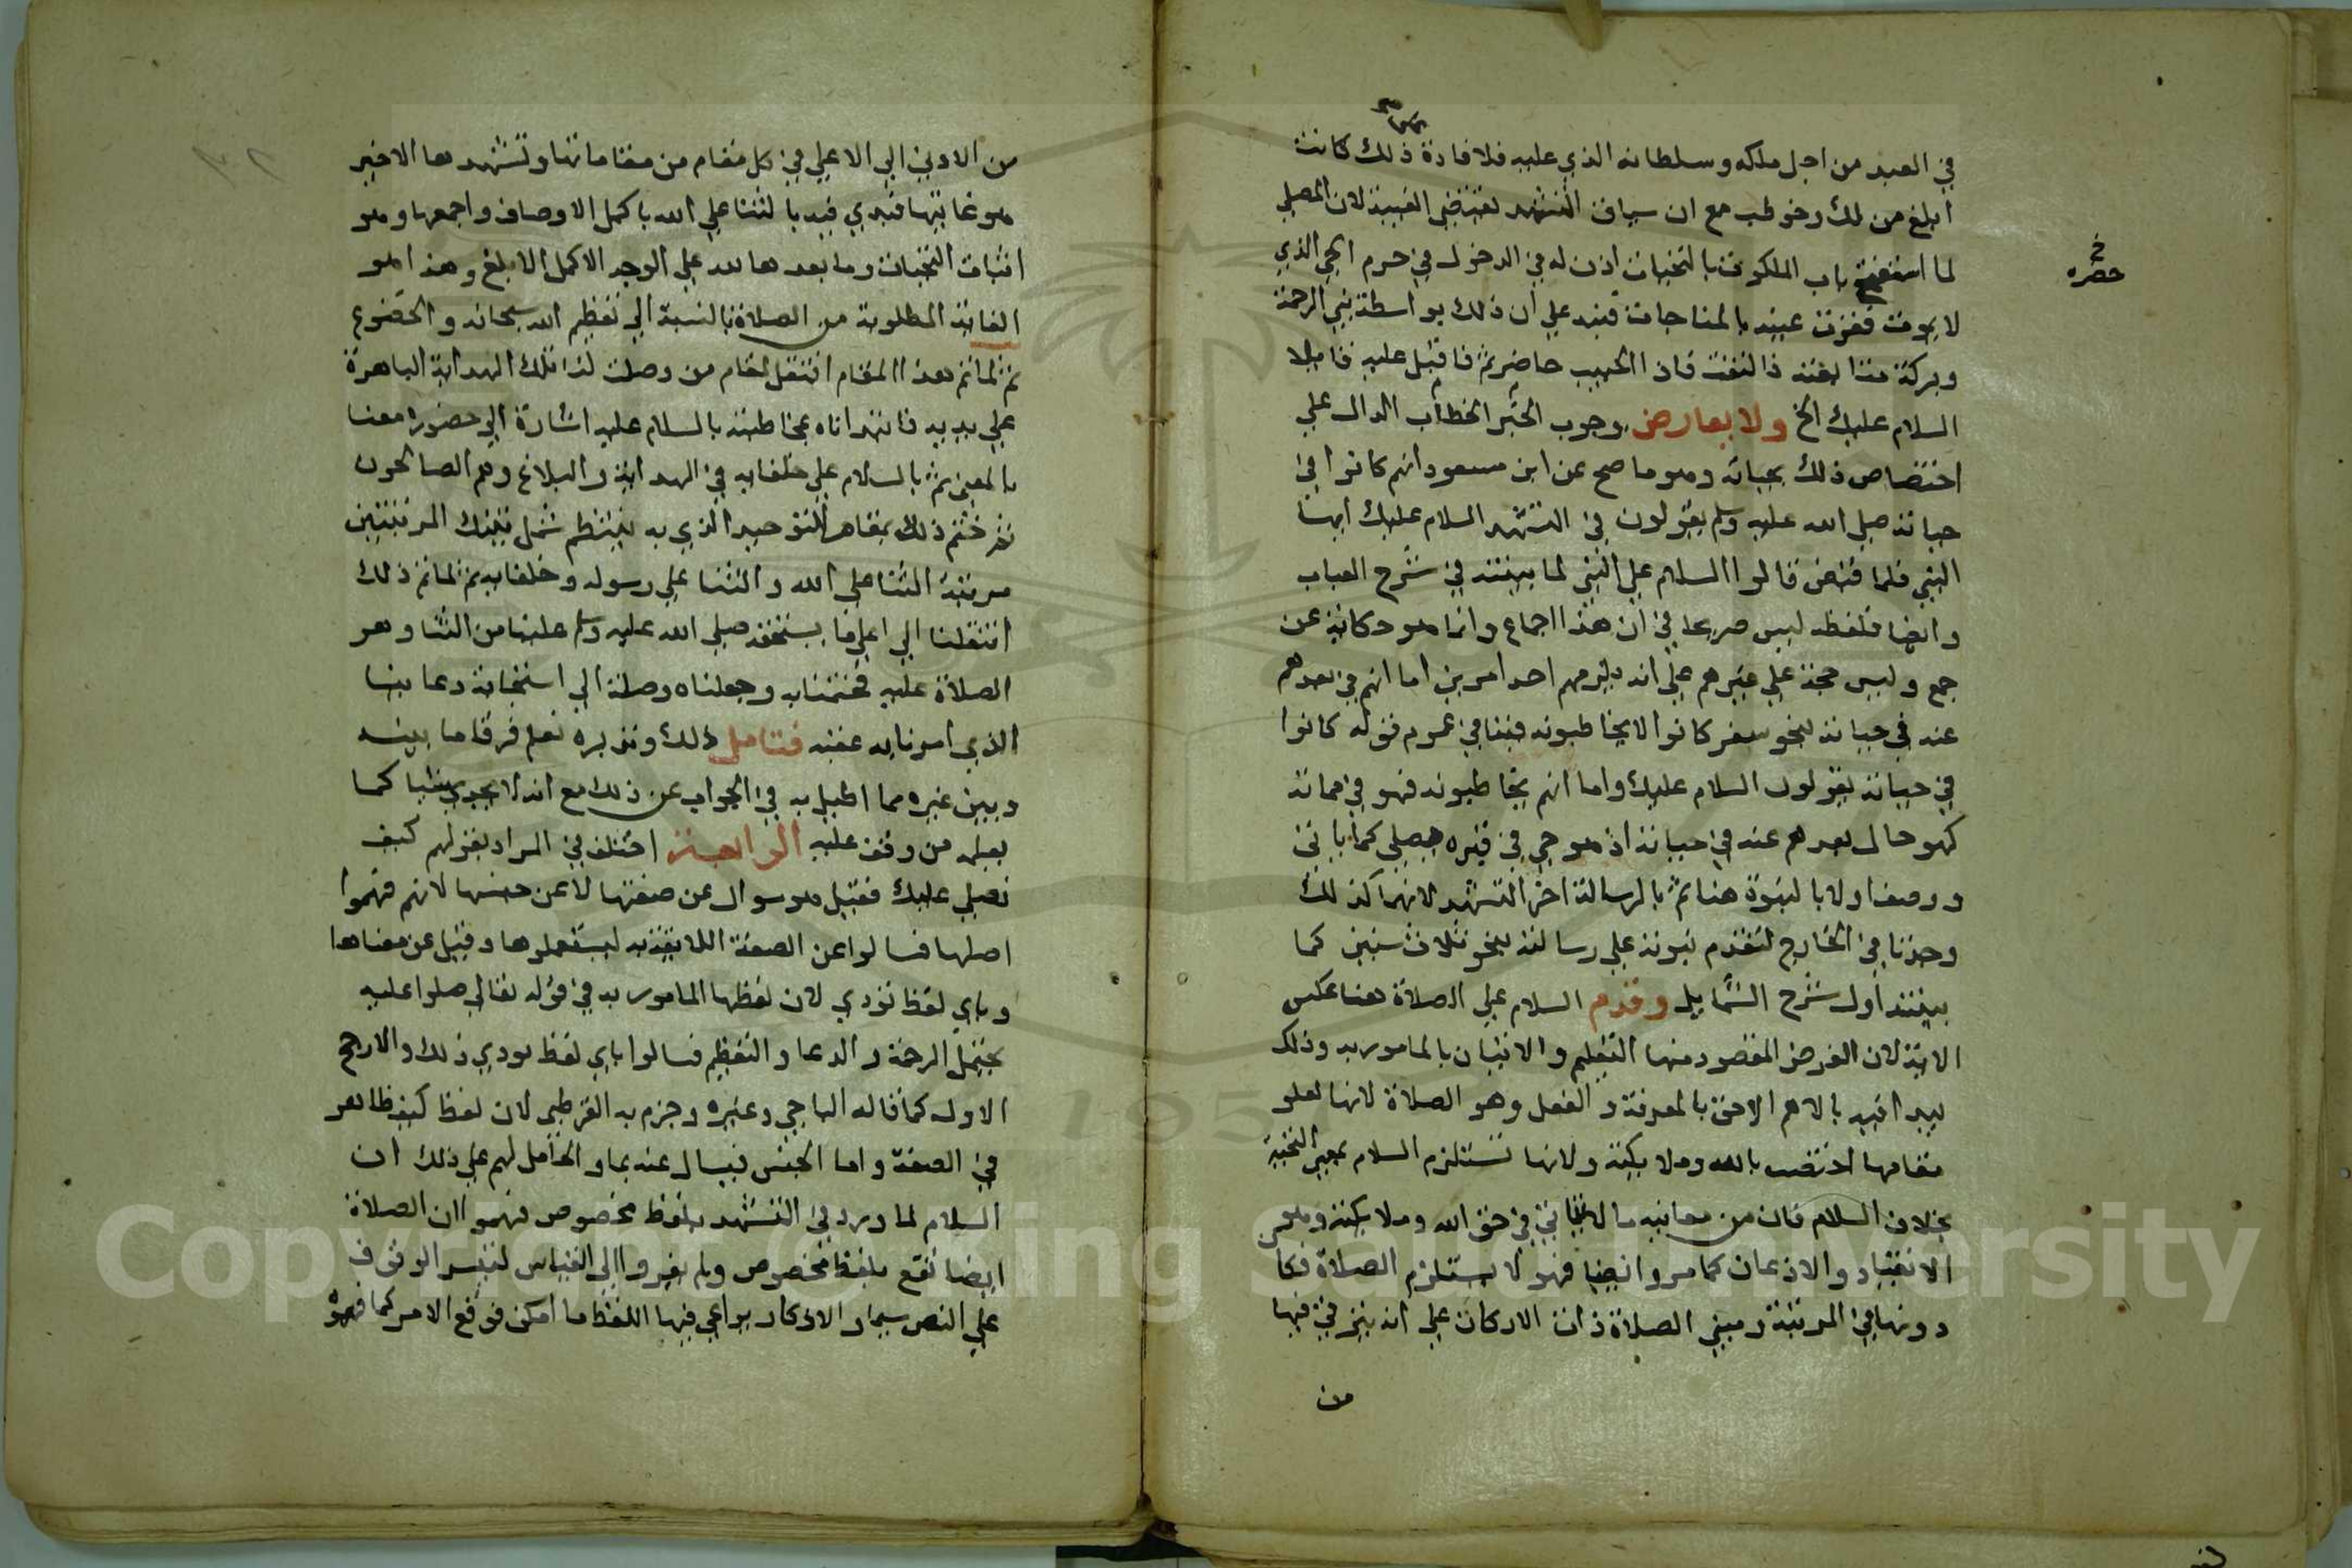 في العبد من اجل ملكه وسلطانه الذي عليه فلافادة ذلك كانت
ابلغ من لك وخوطب مع ان سياق التشهد يقتضي الغيبة لان المصلي
لما استفتح باب الملكوت بالتحيات اذن له في الدخول في حرم الحي الذي
حضره
لا يموت فقرت عينه بالمناجات فنبه علي ان ذلك بواسطة نبي الرحمة
وبركة متابعته فالتفت فاذا الحبيب حاضر ثم فاقبل عليه قايلا
السلام عليك الخ ولا يعارض وجوب الخطاب الدال علي
اختصاص ذلك بحياته وهو ما صح عن ابن مسعود انهم كانوا في
حياته صلي الله عليه وسلم يقولون في التشهد السلام عليك ايها
النبي فلما قبض قالوا السلام علي النبي لما بينته في شرح العباب
وايضا فلفظه ليس صريحا في ان هذا اجماع وانما هو حكاية عن
جمع وليس حجة علي غيرهم علي انه يلزمهم احد امرين اما انهم في بعدهم
عنه في حياته لنحو سفر كانوا لا يخاطبونه فينافي عموم قوله كانوا
في حياته يقولون السلام عليك واما انهم يخاطبونه فهو في مماته
كهو حال بعدهم عنه في حياته اذ هو حي في قبره يصلي كما ياتي
ووصف اولا بالنبوة هنا ثم بالرسالة اخر التشهد لانهما كذلك
وجدتا في الخارج لتقدم نبوته علي رسالته بنحو ثلاث سنين كما
بينته اول شرح الشمايل وقدم السلام علي الصلاة هنا عكس
الاية لان الغرض المقصود منها التعليم والاتيان بالمامور به وذلك
يبدا فيه بالاهم الاحق بالمعرفة والفعل وهو الصلاة لانها لعلو
مقامها اختصت بالله وملايكته ولانها تستلزم السلام بمعني التحية
بخلاف السلام فان من معانيه ما لا ياتي في حق الله وملايكته وهو
الانقياد والاذعان كما مر وايضا فهو لا يستلزم الصلاة فكا
دونها في المرتبة ومبني الصلاة ذات الاركان علي انه يترقي فيها
من
من الادني الي الاعلي في كل مقام من مقاماتها وتشهدها الاخير
هو غايتها فبدي فيه بالثنا علي الله باكمل الاوصاف واجمعها وهو
اثبات التحيات وما بعدها لله علي الوجه الاكمل الابلغ وهذا هو
الغاية المطلوبة من الصلاة بالنسبة الي تعظيم الله سبحانه والخضوع
ثم لما تم هذا المقام انتقل لمقام من وصلت لنا تلك الهداية الباهرة
علي يديه فابتدأناه بمخاطبته بالسلام عليه اشارة الي حضوره معنا
بالمعني ثم بالسلام علي خلفايه في الهداية والبلاغ وهم الصالحون
ثم ختم ذلك بمقام التوحيد الذي به ينتظم شمل تينك المرتبتين
مرتبة الثنا علي الله والثنا علي رسوله وخلفايه ثم لما تم ذلك
انتقلنا الي اعلي ما يستحقه صلي الله عليه وسلم علينا من الثنا وهو
الصلاة عليه فختمنا به وجعلناه وصلة الي استجابة دعاينا
الذي امرنا به عقبه فتامل ذلك وتدبره تعلم فرقا ما بينه
وبين غيره مما اطيل به في الجواب عن ذلك مع انه لا يجدي شيا كما
يعلمه من وقف عليه الرابعة اختلف في المراد بقولهم كيف
نصلي عليك فقيل هو سوال عن صفتها لا عن جنسها لانهم فهموا
اصلها فسالوا عن الصفة اللايقة به ليستعملوها وقيل عن معناها
وباي لفظ تودي لان لفظها المامور به في قوله تعالي صلوا عليه
يحتمل الرحمة والدعا والتعظيم فسالوا باي لفظ يودي ذلك والارجح
الاول كما قاله الباجي وغيره وجزم به القرطبي لان لفظ كيف ظاهر
في الصفة واما الجنس فيسال عنه بما والحامل لهم علي ذلك ان
السلام لما ورد في التشهد بلفظ مخصوص فهموا ان الصلاة
ايضا تقع بلفظ مخصوص ولم يفروا الي القياس لتيسر الوقوف
علي النص سيما والاذكار يراعي فيها اللفظ ما امكن فوقع الامر كما فهموا